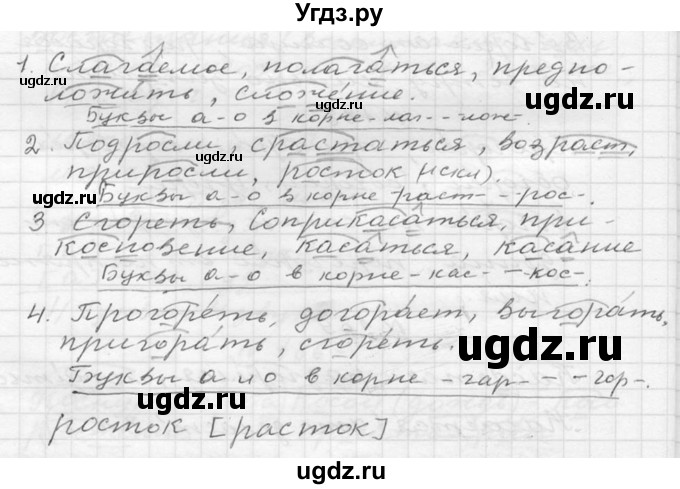 Угдз.ру
1. Слагаемое, полагаться, предпо-
ложить, сложение.
Буквы а-о в корне -лаг- - -лож-.
2. Подросли, срастаться, возраст,
приросли, росток (искл).
Буквы а-о в корне раст- - -рос-.
3. Сгореть, Соприкасаться, при-
косновение, касаться, касание
Буквы а-о в корне -кас- - -кос-.
4. Прогореть, догорает, выгорать,
пригорать, сгореть.
Буквы а и о в корне -гар- - -гор-.
росток [расток]
ugdz.ru
ugdz.ru
ugdz.ru
ugdz.ru
ugdz.ru
ugdz.ru
ugdz.ru
ugdz.ru
ugdz.ru